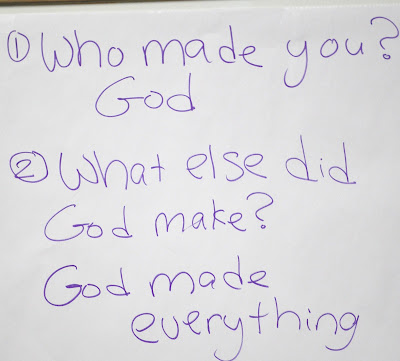 ① Who made you?
God
② What else did
God make?
God made
everything